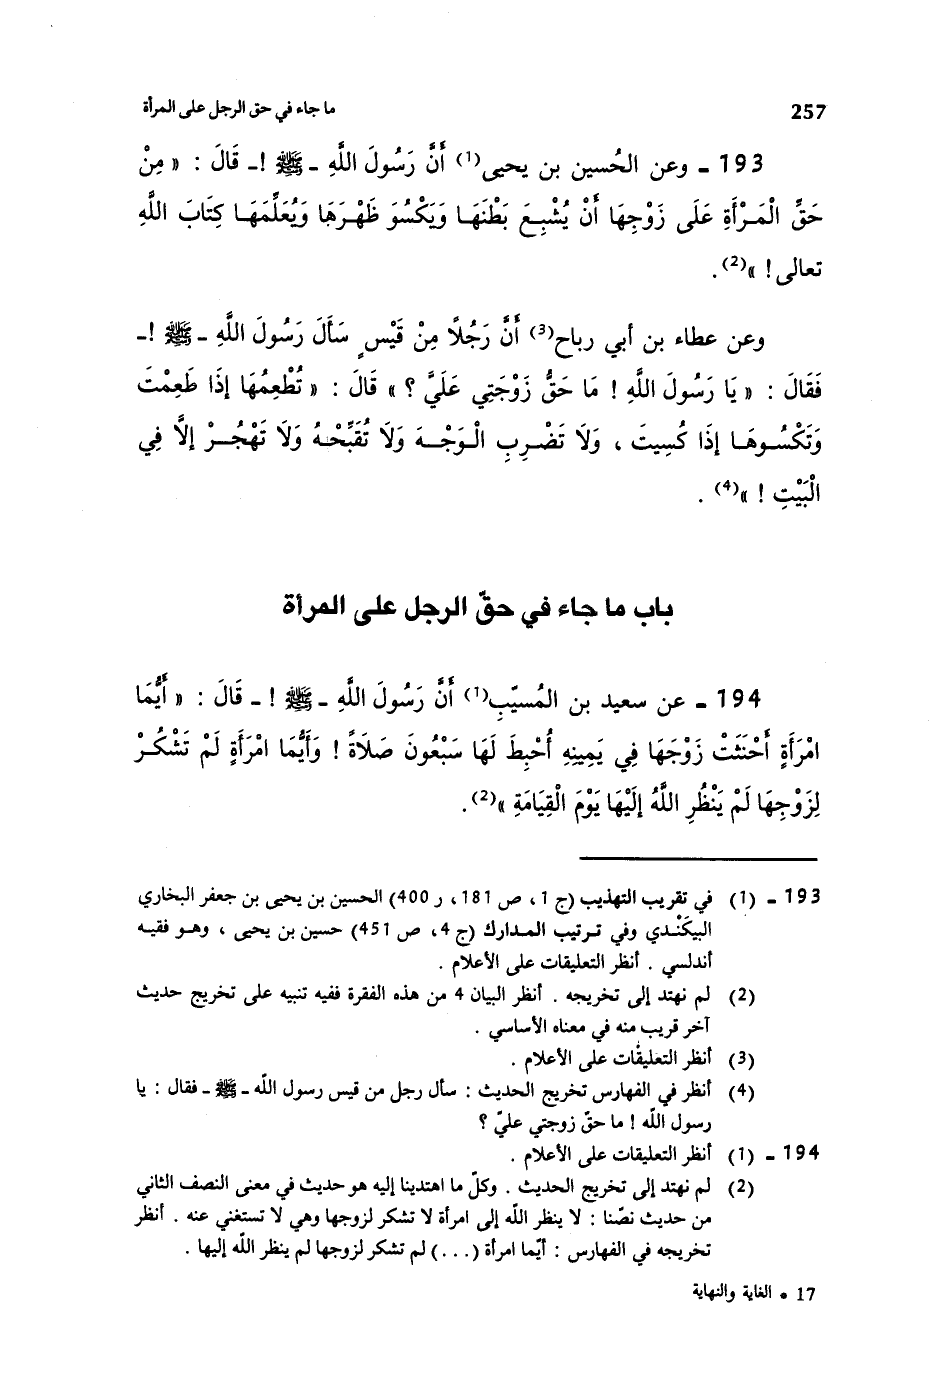 257 ما جاء في حق الرجل على المرأة
193 ـ وعن الحُسين بن يحيى(1) أَنَّ رَسُولَ اللَّهِ ـ ﷺ !ـ قَالَ : « مِنْ
حَقِّ الْمَرْأَةِ عَلَى زَوْجِهَا أَنْ يُشْبِعَ بَطْنَهَا وَيَكْسُوَ ظَهْرَهَا وَيُعَلِّمَهَا كِتَابَ اللَّهِ
تعالى ! »(2).
وعن عطاء بن أبي رباح(3) أَنَّ رَجُلًا مِنْ قَيْسٍ سَأَلَ رَسُولَ اللَّهِ ـ ﷺ !ـ
فَقَالَ : « يَا رَسُولَ اللَّهِ ! مَا حَقُّ زَوْجَتِي عَلَيَّ ؟ » قَالَ : « تُطْعِمُهَا إِذَا طَعِمْتَ
وَتَكْسُوهَا إِذَا كُسِيتَ ، وَلَا تَضْرِبِ الْوَجْهَ وَلَا تُقَبِّحْهُ وَلَا تَهْجُرْ إِلَّا فِي
الْبَيْتِ ! »(4) .
باب ما جاء في حقّ الرجل على المرأة
194 ـ عن سعيد بن المُسيّب(1) أَنَّ رَسُولَ اللَّهِ ـ ﷺ ! ـ قَالَ : « أَيُّمَا
امْرَأَةٍ أَحْنَثَتْ زَوْجَهَا فِي يَمِينِهِ أُحْبِطَ لَهَا سَبْعُونَ صَلَاةً ! وَأَيُّمَا امْرَأَةٍ لَمْ تَشْكُرْ
لِزَوْجِهَا لَمْ يَنْظُرِ اللَّهُ إِلَيْهَا يَوْمَ الْقِيَامَةِ »(2).
193 ـ (1) في تقريب التهذيب (ج 1 ، ص 181 ، ر 400) الحسين بن يحيى بن جعفر البخاري
البيكَنْدي وفي ترتيب المدارك (ج 4، ص 451) حسين بن يحيى ، وهو فقيه
أندلسي . أنظر التعليقات على الأعلام .
(2) لم نهتد إلى تخريجه . أنظر البيان 4 من هذه الفقرة ففيه تنبيه على تخريج حديث
آخر قريب منه في معناه الأساسي .
(3) أنظر التعليقات على الأعلام .
(4) أنظر في الفهارس تخريج الحديث : سأل رجل من قيس رسول اللّه ـ ﷺ ـ فقال : يا
رسول اللّه ! ما حقّ زوجتي عليّ ؟
194 ـ (1) أنظر التعليقات على الأعلام .
(2) لم نهتد إلى تخريج الحديث . وكلّ ما اهتدينا إليه هو حديث في معنى النصف الثاني
من حديث نصّنا : لا ينظر اللّه إلى امرأة لا تشكر لزوجها وهي لا تستغني عنه . أنظر
تخريجه في الفهارس : أيّما امرأة (...) لم تشكر لزوجها لم ينظر اللّه إليها .
17 • الغاية والنهاية